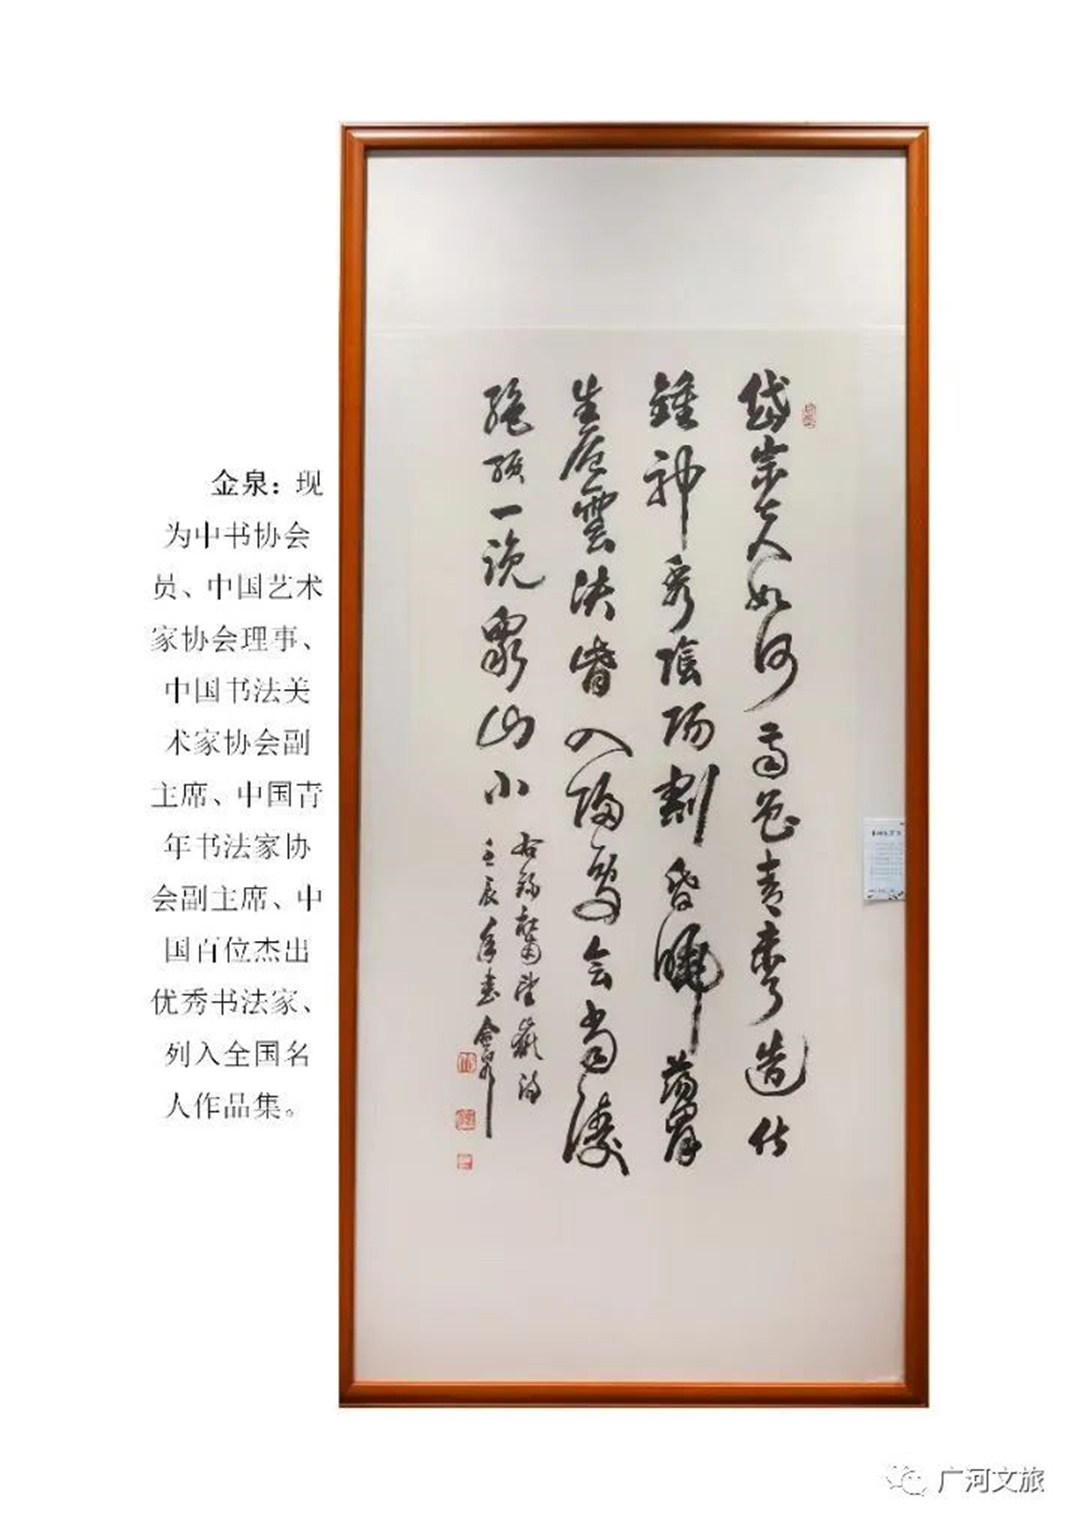 金泉：现
为中书协会
员、中国艺术
家协会理事、
中国书法美
术家协会副
主席、中国青
年书法家协
会副主席、中
国百位杰出
优秀书法家、
列入全国名
人作品集。
岱宗夫如何齊魯青未了造化
鍾神秀陰陽割昏曉蕩胸
生層雲决眥入歸鳥会當凌
絶頂一覽眾山小
右錄杜甫望嶽詩
壬辰年書金泉
广河文旅